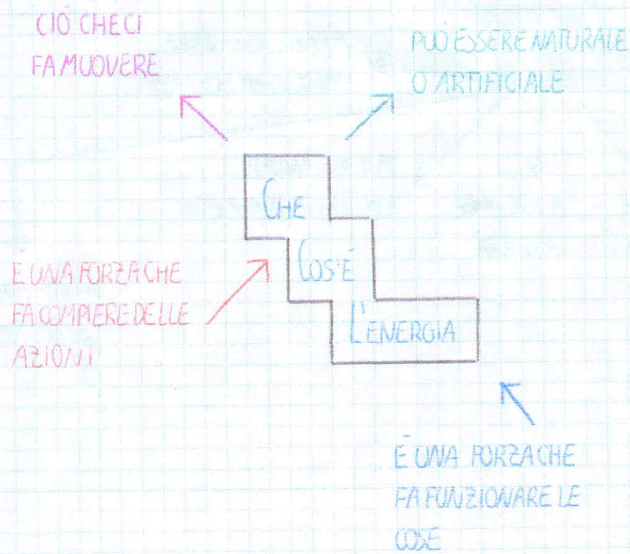 CIÓ CHE CI
FA MUOVERE
PUÒ ESSERE NATURALE
O ARTIFICIALE
CHE
COS'É
L'ENERGIA
É UNA FORZA CHE
FA COMPIERE DELLE
AZIONI
É UNA FORZA CHE
FA FUNZIONARE LE
COSE